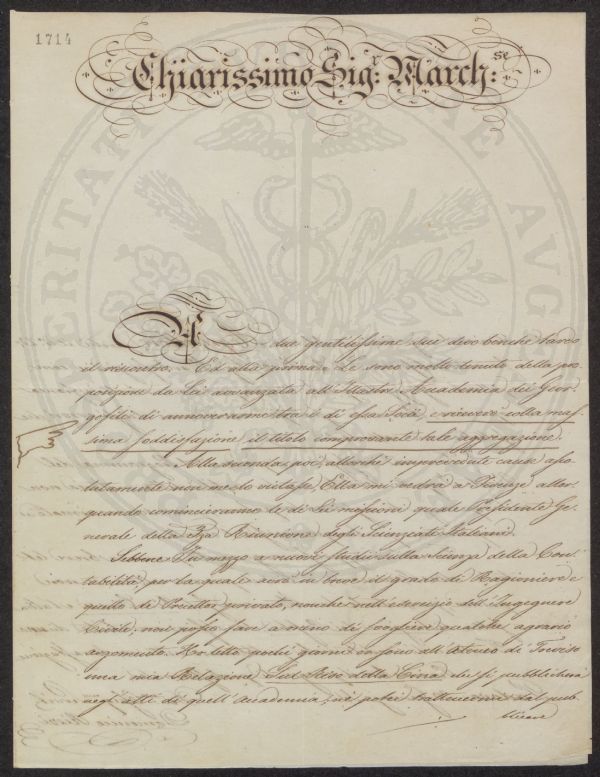 1714
Chiarissimo Sig.r March.se
PERITATI AUG
A' due gentilissime sue devo benchè tardo
il riscontro. Ed alla prima, Le sono molto tenuto della pro
posizione da Lei avanzata all' Illustre Accademia dei Geor
gofili di annoverarmene tra i di essa Socii e ricevere colla mas
sima soddisfazione il titolo comprovante tale aggregazione.
Alla seconda poi, allorchè imprevedute cause asso
lutamente non me lo vietasse, Ella mi vedrà a Firenze allor
quando cominceranno le di Lei mansioni quale Presidente Ge
nerale della 3za Riunione degli Scienziati Italiani.
Sebbene in mezzo a nuovi studii sulla Scienza della Con
tabilità, per la quale avrò in breve il grado di Ragioniere e
quello di Precettor privato, nonchè nell' esercizio dell' Ingegnere
Civile, non posso fare a meno di svolgere qualche agrario
argomento. Ho letto pochi giorni or sono all' Ateneo di Treviso
una mia Relazione Sul Riso della Cina che si pubblicherà
negli atti di quell' Accademia, nè potei trattenermi dal pub
blicare